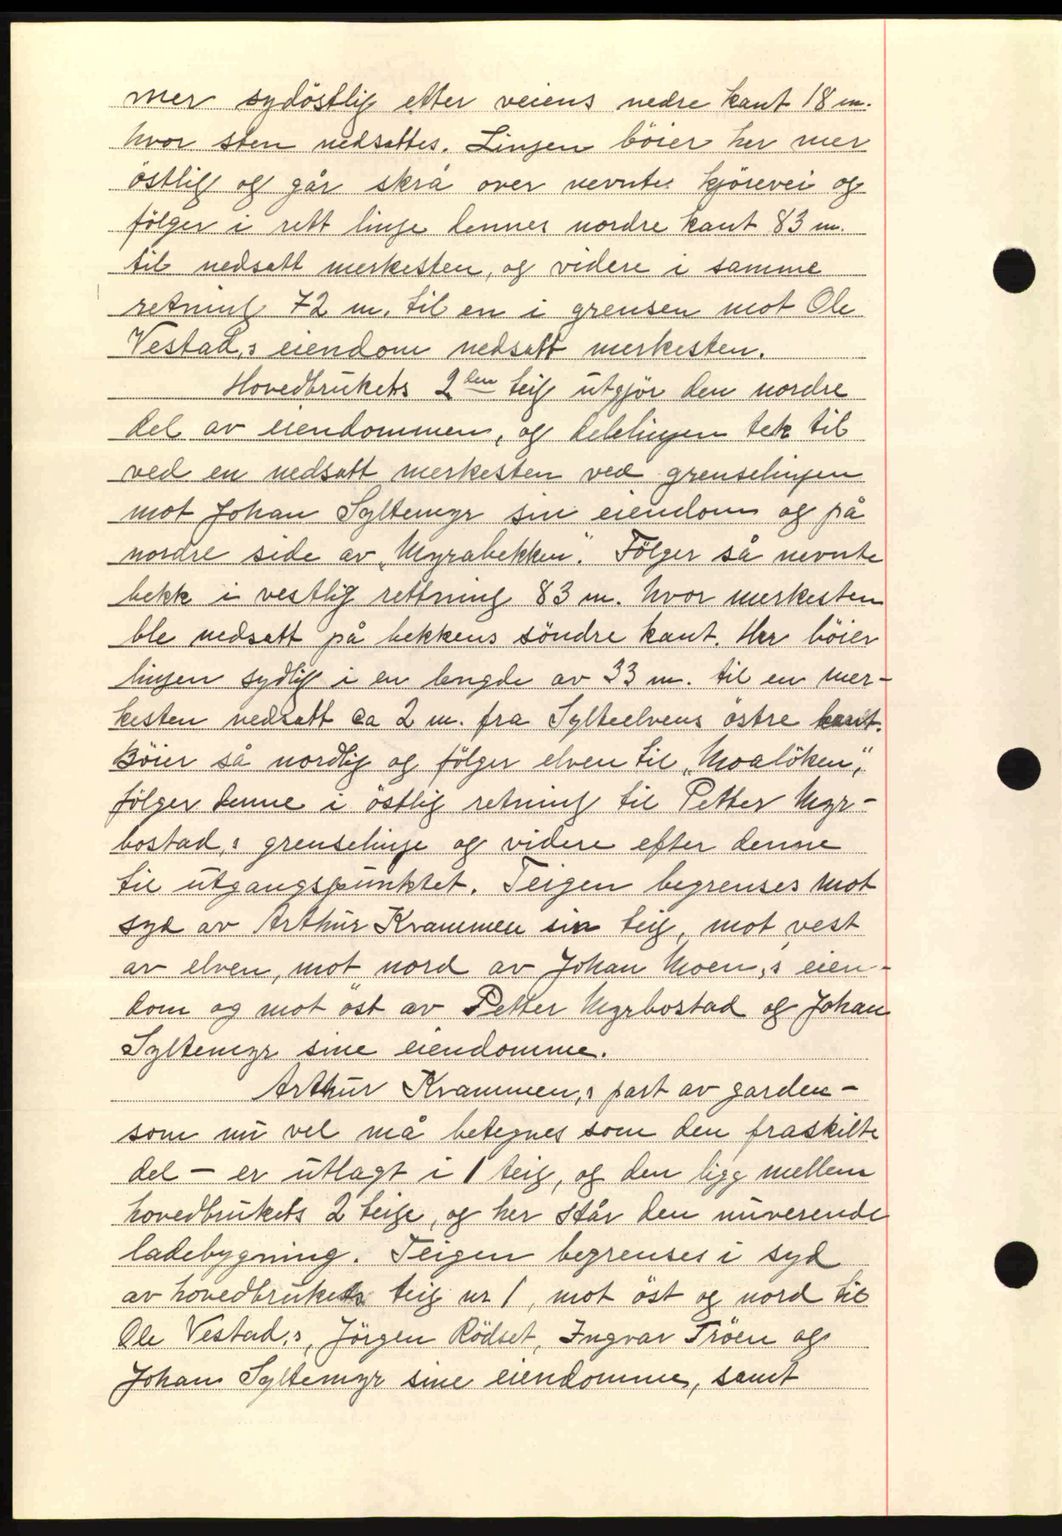 mer sydöstlig etter veiens nedre kant 18 m.
hvor sten nedsattes. Linjen böier her mer
östlig og går skrå over nevnte kjörevei og
fölger i rett linje dennes nordre kant 83 m.
til nedsatt merkesten, og videre i samme
retning 72 m. til en i grensen mot Ole
Vestad,s eiendom nedsatt merkesten.
Hovedbrukets 2den teig utgjör den nordre
del av eiendommen, og delelinjen tek til
ved en nedsatt merkesten ved grenselinjen
mot Johan Syltemyr sin eiendom og på
nordre side av „Myrabekken". Fölger så nevnte
bekk i vestlig rettning 83 m. hvor merkesten
ble nedsatt på bekkens söndre kant. Her böier
linjen sydlig i en lengde av 33 m. til en mer-
kesten nedsatt ca 2 m. fra Sylteelvens östre kant.
Böier så nordlig og fölger elven til „Moalöken",
fölger denne i östlig retning til Petter Myr-
bostad,s grenselinje og videre efter denne
til utgangspunktet. Teigen begrenses mot
syd av Arthur Krammen sin teig, mot vest
av elven, mot nord av Johan Moen,s eien-
dom og mot öst av Petter Myrbostad og Johan
Syltemyr sine eiendomme.
Arthur Krammen,s part av garden -
som nu vel må betegnes som den fraskilte
del - er utlagt i 1 teig, og den ligg mellem
hovedbrukets 2 teige, og her står den nuverende
ladebygning. Teigen begrenses i syd
av hovedbrukets teig nr 1, mot öst og nord til
Ole Vestad,s, Jörgen Rödset, Ingvar Tröen og
Johan Syltemyr sine eiendomme, samt